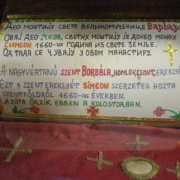 ДЕО МОЋИЈУ СВЕТЕ ВЕЛИКОМУЧЕНИЦЕ ВАРВАР
ОВАЈ ДЕО СВЕТИХ МОЋИЈУ ЈЕ ДОНЕО МОНАХ
СИМЕОН 1660-ИХ ГОДИНА ИЗ СВЕТЕ ЗЕМЉЕ.
ОД ТАДА СЕ ЧУВАЈУ У ОВОМ МАНАСТИРУ.
A NAGYVÉRTANÚ SZENT BORBÁLA, HOMLOKCSONT, EREKLYÉ
EZT A SZENT EREKLYÉT SIMEON SZERZETES HOZTA
SZENTFÖLDRŐL 1660-AS ÉVEKBEN.
AZÓTA ŐRZIK EBBEN A KOLOSTORBAN.